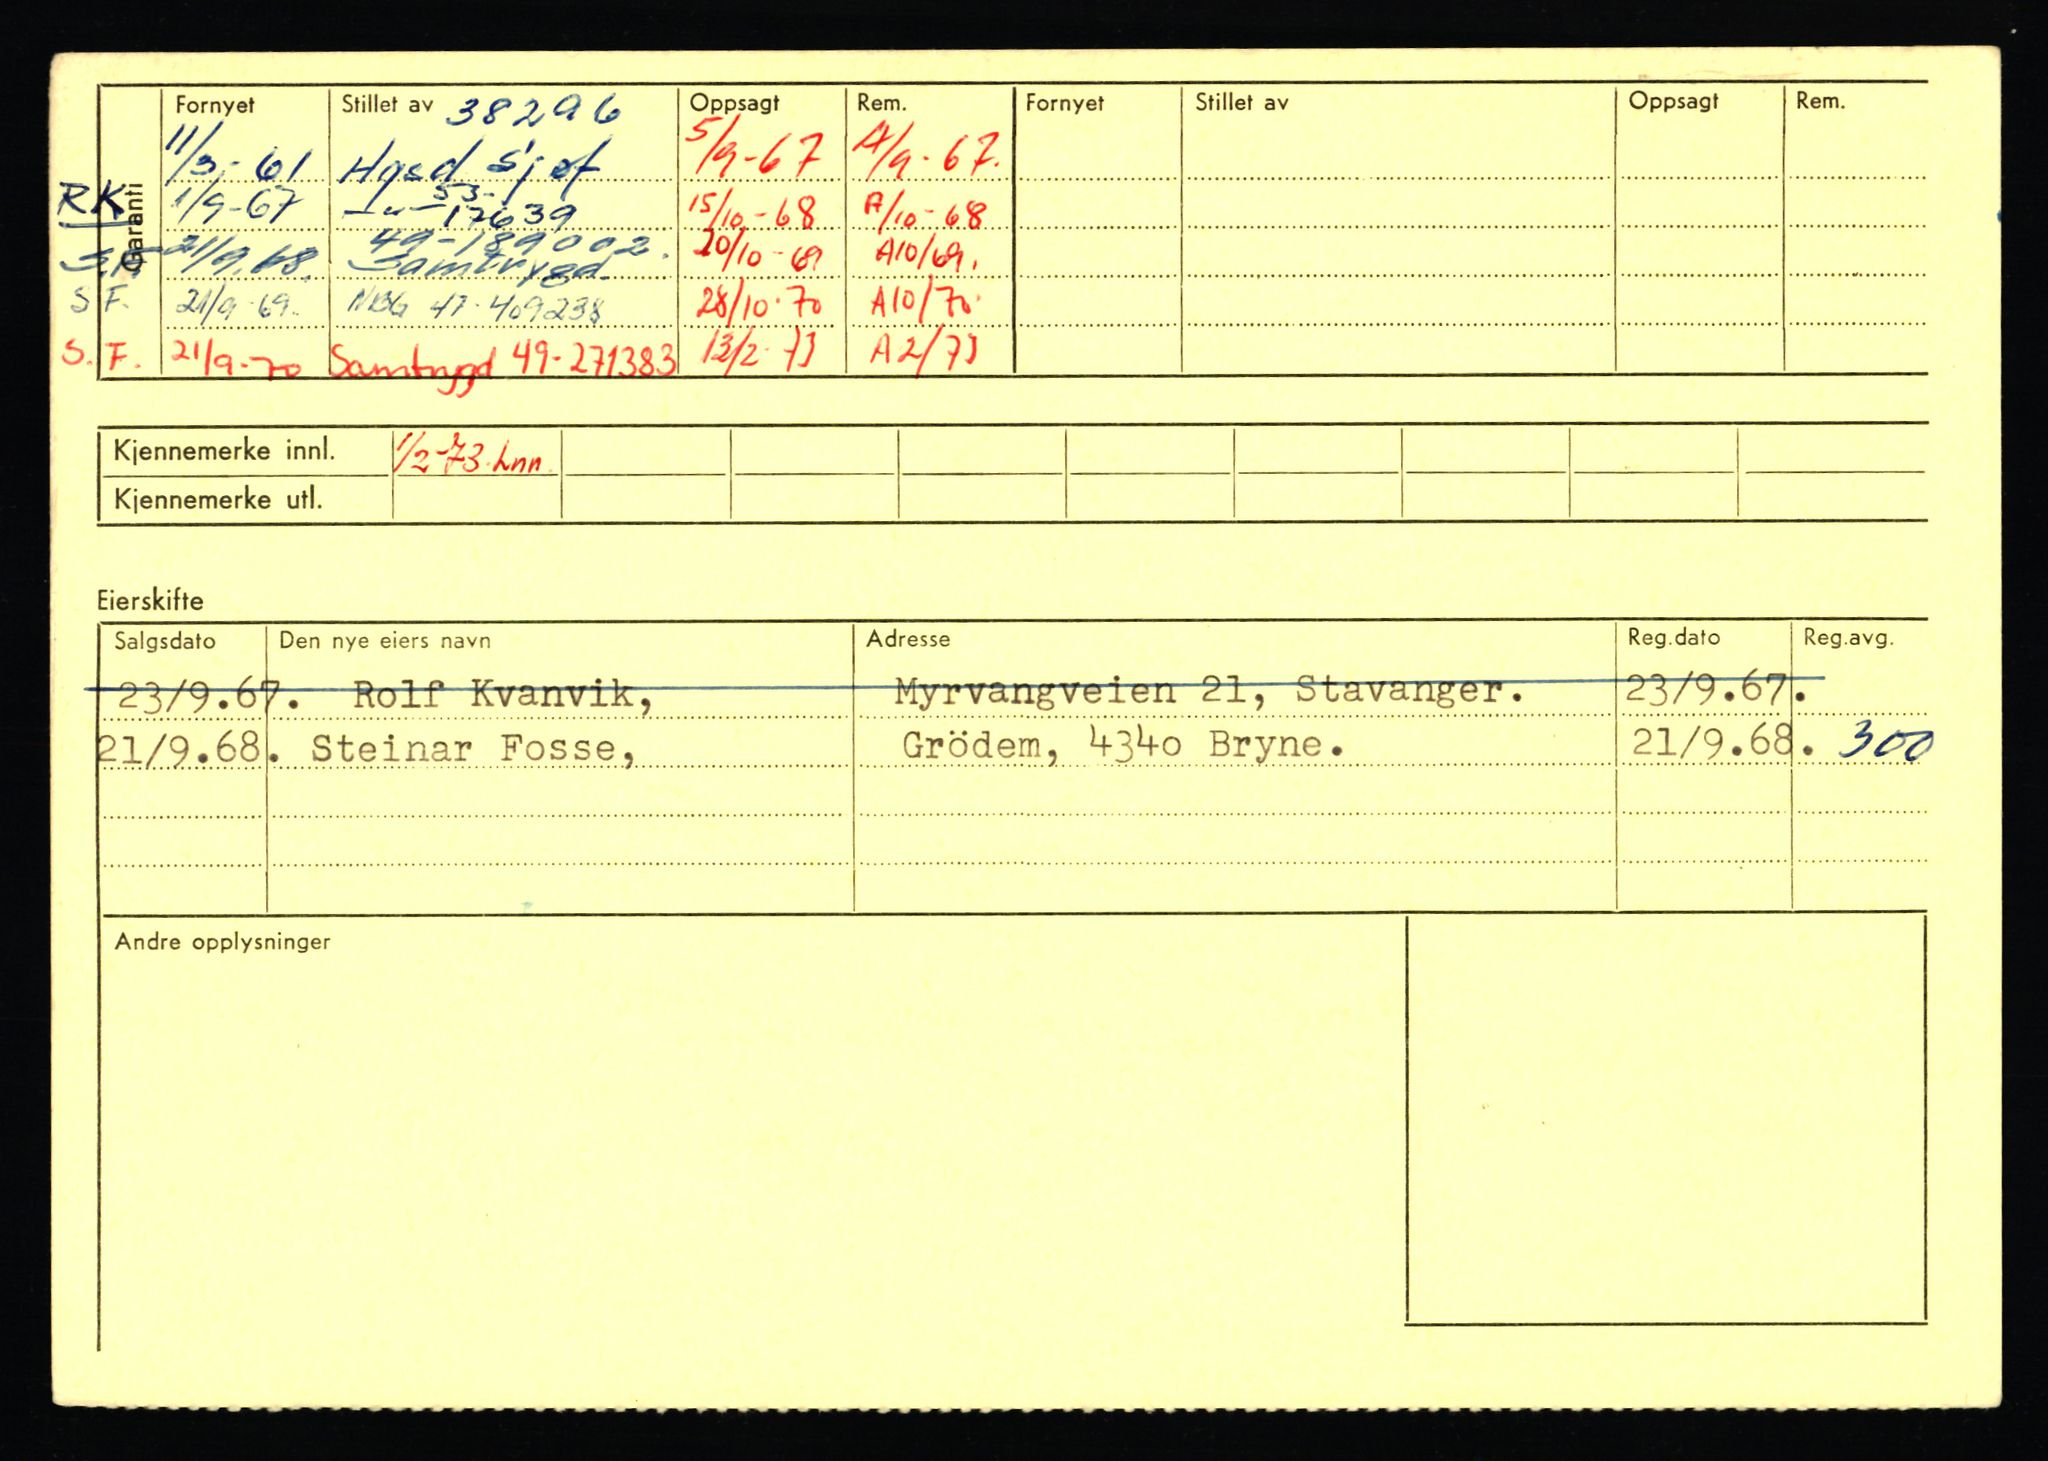 Garanti
Fornyet Stillet av 38296 Oppsagt Rem. Fornyet Stillet av Oppsagt Rem.
11/3-61 Hgsd Sjøf 5/9-67 A/9-67.
RK 1/9-67 -"- 53-17639 15/10-68 A/10-68
S.F. 21/9.68. 49-189002. Samtrygd 20/10-69 A10/69.
S F. 21/9-69. NBG 47-409238 28/10-70 A10/70.
S. F. 21/9-70 Samtrygd 49-271383 13/2-73 A2/73
Kjennemerke innl. 1/2-73. Lnn.
Kjennemerke utl.
Eierskifte
Salgsdato Den nye eiers navn Adresse Reg.dato Reg.avg.
23/9.67. Rolf Kvanvik, Myrvangveien 21, Stavanger. 23/9.67.
21/9.68. Steinar Fosse, Grödem, 4340 Bryne. 21/9.68. 300
Andre opplysninger